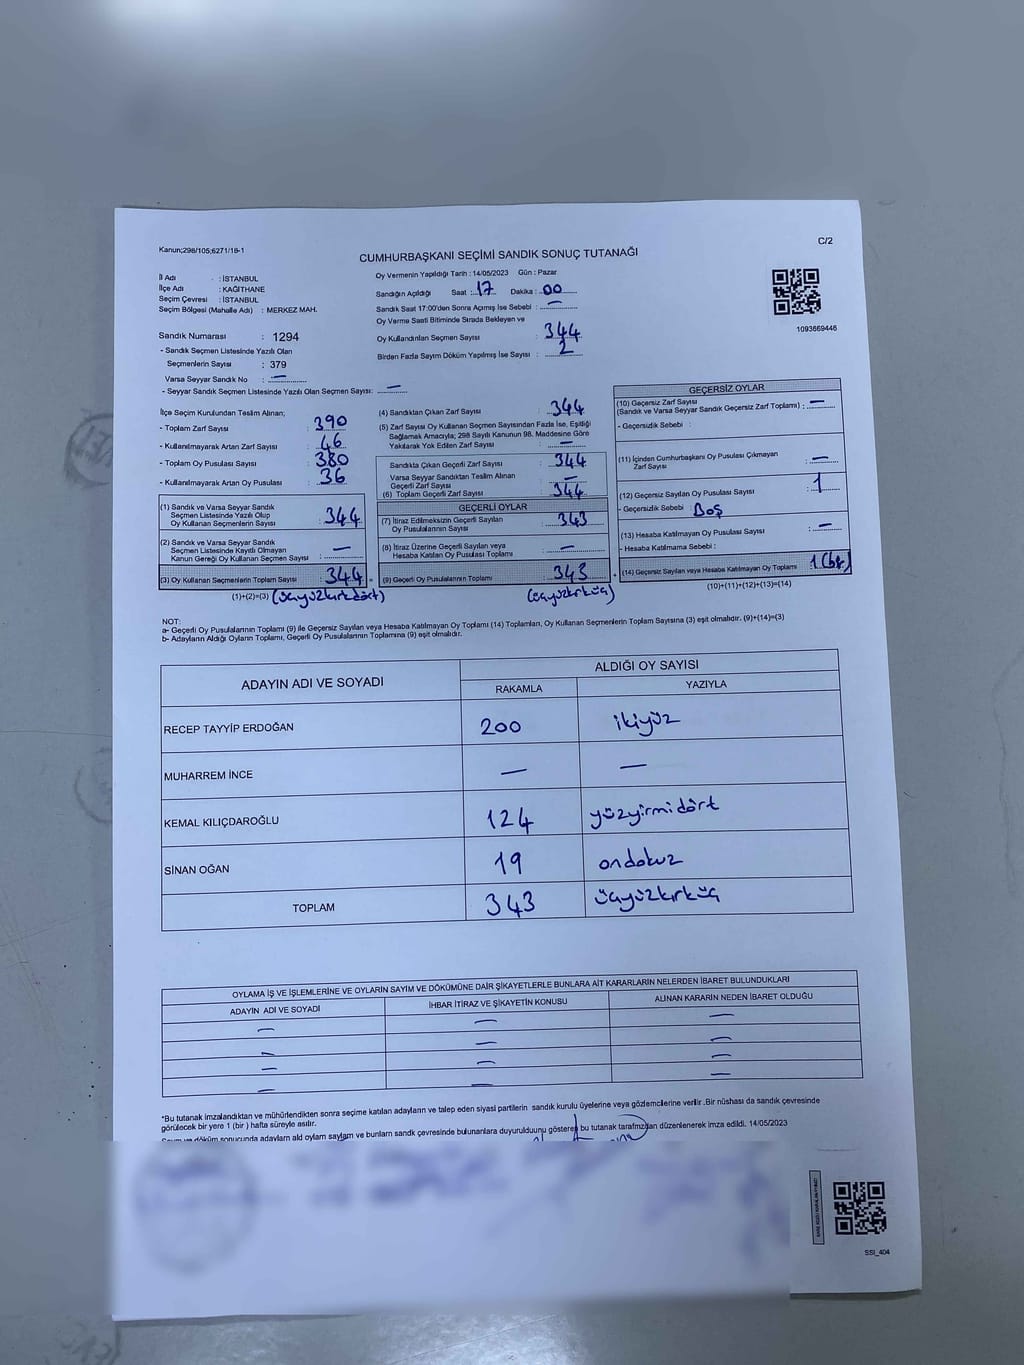 Kanun;298/105;6271/16-1
C/2
CUMHURBAŞKANI SEÇİMİ SANDIK SONUÇ TUTANAĞI
İl Adı : İSTANBUL
İlçe Adı : KAĞITHANE
Seçim Çevresi : İSTANBUL
Seçim Bölgesi (Mahalle Adı) : MERKEZ MAH.
Sandık Numarası : 1294
- Sandık Seçmen Listesinde Yazılı Olan
Seçmenlerin Sayısı : 379
Varsa Seyyar Sandık No : —
- Seyyar Sandık Seçmen Listesinde Yazılı Olan Seçmen Sayısı: —
Oy Vermenin Yapıldığı Tarih : 14/05/2023 Gün : Pazar
Sandığın Açıldığı Saat : 17 Dakika : 00
Sandık Saat 17:00'den Sonra Açılmış İse Sebebi : —
Oy Verme Saati Bitiminde Sırada Bekleyen ve
Oy Kullandırılan Seçmen Sayısı : 344
Birden Fazla Sayım Döküm Yapılmış İse Sayısı : 2
1093669446
İlçe Seçim Kurulundan Teslim Alınan;
- Toplam Zarf Sayısı : 390
- Kullanılmayarak Artan Zarf Sayısı : 46
- Toplam Oy Pusulası Sayısı : 380
- Kullanılmayarak Artan Oy Pusulası : 36
(1) Sandık ve Varsa Seyyar Sandık
Seçmen Listesinde Yazılı Olup
Oy Kullanan Seçmenlerin Sayısı : 344
(2) Sandık ve Varsa Seyyar Sandık
Seçmen Listesinde Kayıtlı Olmayan
Kanun Gereği Oy Kullanan Seçmen Sayısı : —
(3) Oy Kullanan Seçmenlerin Toplam Sayısı : 344
(1)+(2)=(3) (üçyüzkırkdört)
(4) Sandıktan Çıkan Zarf Sayısı : 344
(5) Zarf Sayısı Oy Kullanan Seçmen Sayısından Fazla İse, Eşitliği
Sağlamak Amacıyla; 298 Sayılı Kanunun 98. Maddesine Göre
Yakılarak Yok Edilen Zarf Sayısı : —
Sandıkta Çıkan Geçerli Zarf Sayısı : 344
Varsa Seyyar Sandıktan Teslim Alınan
Geçerli Zarf Sayısı : —
(6) Toplam Geçerli Zarf Sayısı : 344
GEÇERLİ OYLAR
(7) İtiraz Edilmeksizin Geçerli Sayılan
Oy Pusulalarının Sayısı : 343
(8) İtiraz Üzerine Geçerli Sayılan veya
Hesaba Katılan Oy Pusulası Toplamı : —
(9) Geçerli Oy Pusulalarının Toplamı : 343
(üçyüzkırküç)
GEÇERSİZ OYLAR
(10) Geçersiz Zarf Sayısı
(Sandık ve Varsa Seyyar Sandık Geçersiz Zarf Toplamı) : —
- Geçersizlik Sebebi :
(11) İçinden Cumhurbaşkanı Oy Pusulası Çıkmayan
Zarf Sayısı : —
(12) Geçersiz Sayılan Oy Pusulası Sayısı : 1
- Geçersizlik Sebebi : Boş
(13) Hesaba Katılmayan Oy Pusulası Sayısı : —
- Hesaba Katılmama Sebebi :
(14) Geçersiz Sayılan veya Hesaba Katılmayan Oy Toplamı : 1 (bir)
(10)+(11)+(12)+(13)=(14)
NOT:
a- Geçerli Oy Pusulalarının Toplamı (9) ile Geçersiz Sayılan veya Hesaba Katılmayan Oy Toplamı (14) Toplamları, Oy Kullanan Seçmenlerin Toplam Sayısına (3) eşit olmalıdır. (9)+(14)=(3)
b- Adayların Aldığı Oyların Toplamı, Geçerli Oy Pusulalarının Toplamına (9) eşit olmalıdır.
ADAYIN ADI VE SOYADI
ALDIĞI OY SAYISI
RAKAMLA YAZIYLA
RECEP TAYYİP ERDOĞAN 200 ikiyüz
MUHARREM İNCE — —
KEMAL KILIÇDAROĞLU 124 yüzyirmidört
SİNAN OĞAN 19 ondokuz
TOPLAM 343 üçyüzkırküç
OYLAMA İŞ VE İŞLEMLERİNE VE OYLARIN SAYIM VE DÖKÜMÜNE DAİR ŞİKAYETLERLE BUNLARA AİT KARARLARIN NELERDEN İBARET BULUNDUKLARI
ADAYIN ADI VE SOYADI İHBAR İTİRAZ VE ŞİKAYETİN KONUSU ALINAN KARARIN NEDEN İBARET OLDUĞU
— — —
— — —
— — —
— — —
*Bu tutanak imzalandıktan ve mühürlendikten sonra seçime katılan adayların ve talep eden siyasi partilerin sandık kurulu üyelerine veya gözlemcilerine verilir .Bir nüshası da sandık çevresinde
görülecek bir yere 1 (bir ) hafta süreyle asılır.
döküm sonucunda adayların bu tutanak tarafımızdan düzenlenerek imza edildi. 14/05/2023
SSI_404